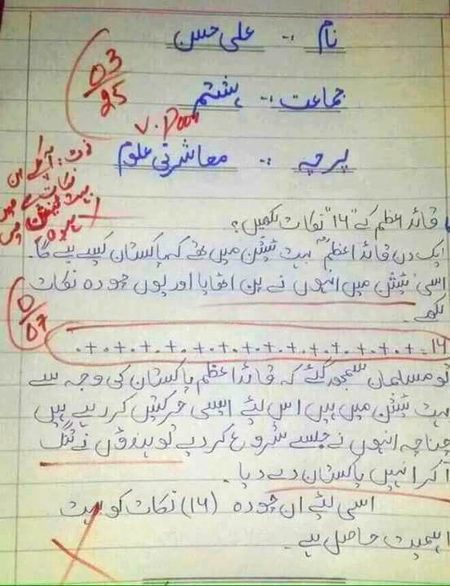 نام :- علی حسن
03/25
جماعت :- ہشتم
V. Poor
پرچہ :- معاشرتی علوم
نوٹ: آپ کے ان
نکات سے میں
بہت ٹینشن میں
ہوں
قائد اعظم کے "14" نکات لکھیں؟
ایک دن قائد اعظم بہت ٹینشن میں تھے کہ پاکستان کیسے بنے گا۔
اسی ٹینشن میں انہوں نے پن اٹھایا اور یوں چودہ نکات
لکھے۔
0/07
14 = .+.+.+.+.+.+.+.+.+.+.+.+.+.
تو مسلمان سمجھ گئے کہ قائد اعظم پاکستان کی وجہ سے
بہت ٹینشن میں ہیں اس لئے ایسی حرکتیں کر رہے ہیں
چناچہ انہوں نے جلسے شروع کر دیے تو ہندوؤں نے تنگ
آ کر انہیں پاکستان دے دیا۔
اسی لئے ان چودہ (14) نکات کو بہت
اہمیت حاصل ہے۔